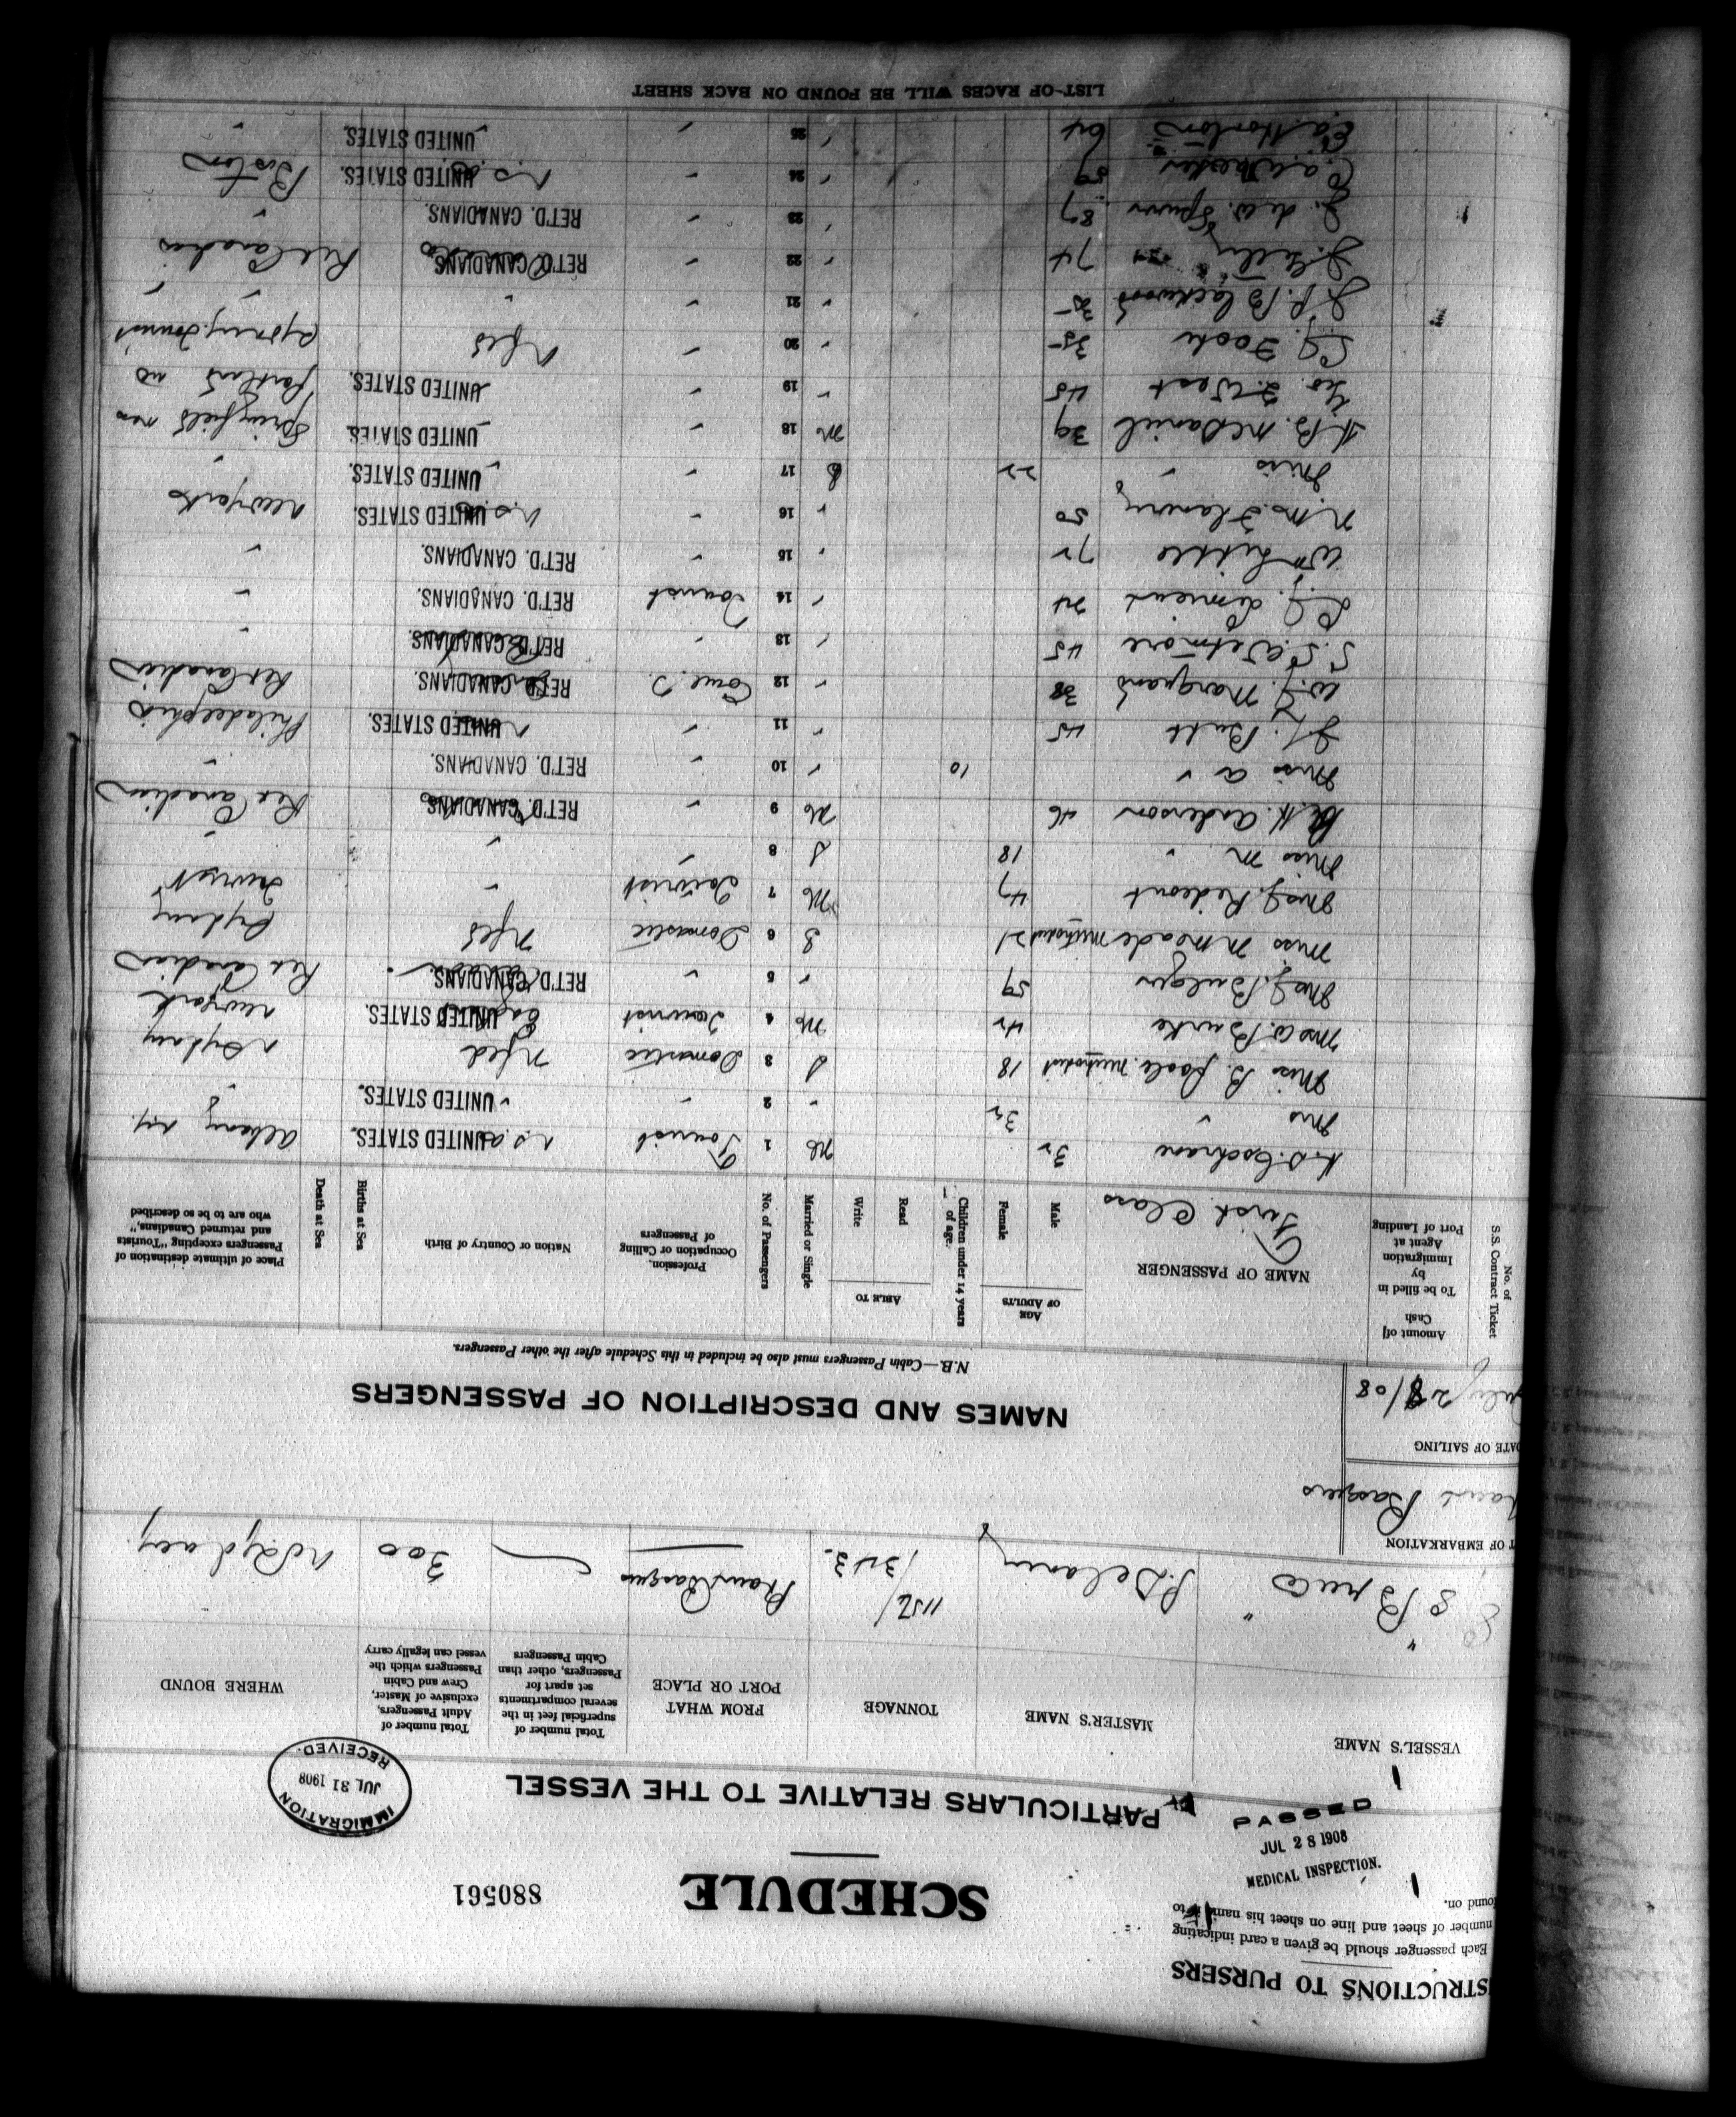 INSTRUCTIONS TO PURSERS
Each passenger should be given a card indicating
number of sheet and line on sheet his name is to
found on.
MEDICAL INSPECTION.
JUL 28 1908
PASSED
SCHEDULE
880561
PARTICULARS RELATIVE TO THE VESSEL
IMMIGRATION
JUL 31 1908
RECEIVED.
VESSEL'S NAME MASTER'S NAME TONNAGE FROM WHAT PORT OR PLACE Total number of superficial feet in the several compartments set apart for Passengers, other than Cabin Passengers Total number of Adult Passengers, exclusive of Master, Crew and Cabin Passengers which the vessel can legally carry WHERE BOUND
SS "Bruce" P. Delaney 1152/1343. Port aux Basques 300 No Sydney
OF EMBARKATION
Basques
DATE OF SAILING
July 28/08
NAMES AND DESCRIPTION OF PASSENGERS
N.B.—Cabin Passengers must also be included in this Schedule after the other Passengers.
No. of S.S. Contract Ticket Amount of Cash To be filled in by Immigration Agent at Port of Landing NAME OF PASSENGER AGE OF ADULTS Male Female Children under 14 years of age. ABLE TO Read Write Married or Single No. of Passengers Profession, Occupation or Calling of Passengers Nation or Country of Birth Births at Sea Death at Sea Place of ultimate destination of Passengers excepting "Tourists and returned Canadians," who are to be so described
First Class
Cochrane 32 M 1 Tourist U.S.A. UNITED STATES. Albany N.Y.
Mrs " 32 " 2 " " UNITED STATES. "
Miss B. Poole Methodist 18 S 3 Domestic Nfld N Sydney
Mrs W. Burke 42 M 4 Tourist UNITED STATES. New York
Mrs J. Bulger 59 " 5 " RET'D. CANADIANS. Ret Canadian
Miss M Meade Methodist 21 S 6 Domestic Nfld Sydney
Mrs J. Rideout 47 M 7 Tourist " Tourist
Miss M " 18 S 8 " " "
H. Anderson 46 M 9 " RET'D. CANADIANS. Ret Canadian
Miss A " 10 " 10 " RET'D. CANADIANS. "
J. Butt 45 " 11 " UNITED STATES. Philadelphia
W. J. Marquand 38 " 12 Com'l T. RET'D. CANADIANS. Ret Canadian
Wetmore 45 " 13 " RET'D. CANADIANS. "
24 " 14 Tourist RET'D. CANADIANS. "
Wm Little 72 " 15 " RET'D. CANADIANS. "
Flannery 50 " 16 " U.S.A. UNITED STATES. New York
Miss " 22 S 17 " " UNITED STATES. "
B. McDaniel 39 M 18 " " UNITED STATES. Springfield Mass
Geo. F. West 45 " 19 " " UNITED STATES. Portland
Foote 35 " 20 " Nfld Sydney Tourist
Blackwood 35 " 21 " " "
74 " 22 " RET'D. CANADIANS. Ret Canadian
J. deW. Spurr 87 " 23 " RET'D. CANADIANS. "
59 " 24 " U.S.A. UNITED STATES. Boston
Horton 64 " 25 " " UNITED STATES. "
LIST OF RACES WILL BE FOUND ON BACK SHEET